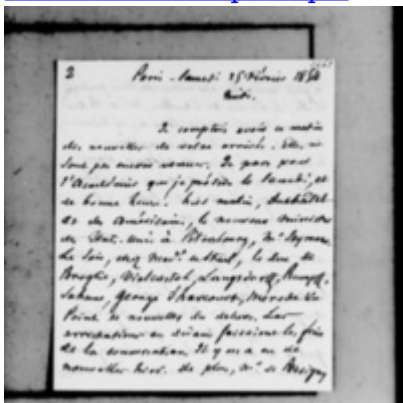 2 Paris - Samedi 25 février 1854
Midi.
Je comptais avoir ce matin
des nouvelles de votre arrivée. Elles ne
sont pas encore venues. Je pars pour
l'Académie que je préside le Samedi, et
de bonne heure. hier matin, Duchâtel
et des Américains, le nouveau ministre
des Etats-Unis à Pétersbourg, Mr Seymour
Le soir, chez Mad. le duc de
Broglie, Vielcastel, Langsdorff, Rumpff,
George d'harcourt,
Point de nouvelles du dehors. Les
arrestations en faisaient les frais
de la conversation. Il y en a eu de
nouvelles hier. De plus, Mr de Persigny